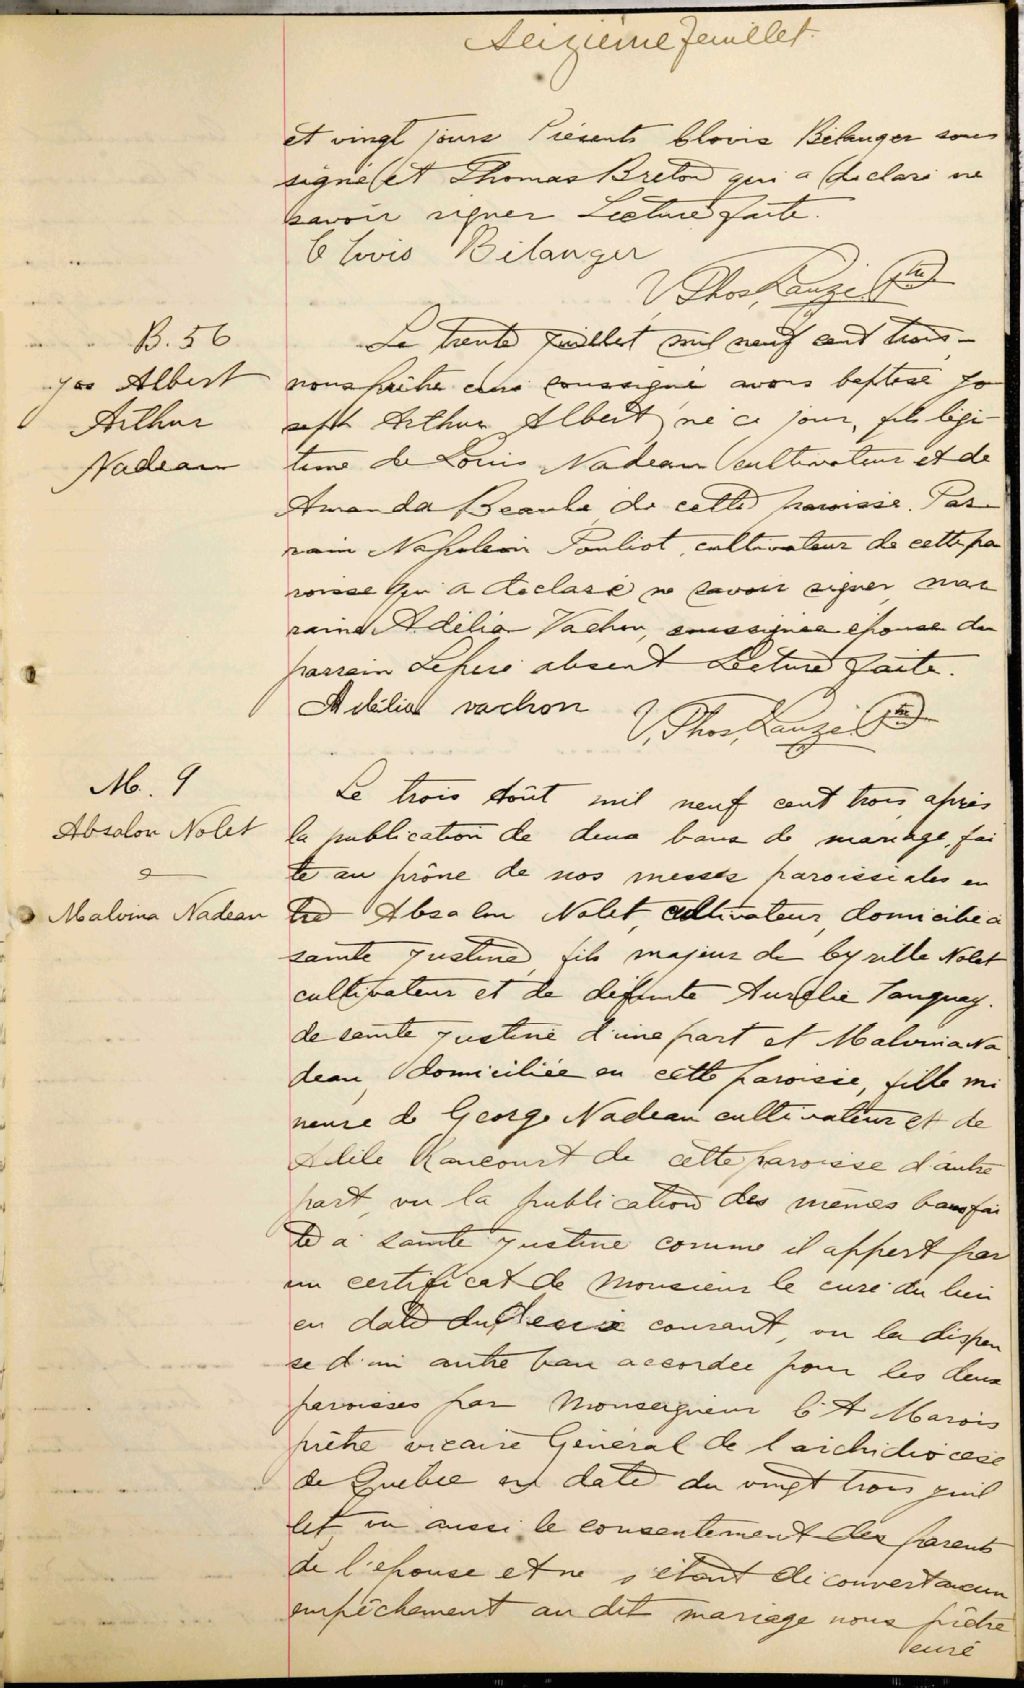 Seizième feuillet.
et vingt jours Présents Clovis Bélanger sous
signé et Thomas Breton qui a déclaré ne
savoir signer Lecture faite.
Clovis Bélanger
V. Thos, Lauzé Ptre
B. 56
Jos Albert
Arthur
Nadeau
Le trente juillet mil neuf cent trois,
nous prêtre curé soussigné avons baptisé Jo
seph Arthur Albert, né ce jour, fils légi-
time de Louis Nadeau cultivateur et de
Amanda Beaulé de cette paroisse. Par-
rain Napoléon Pouliot, cultivateur de cette pa
roisse qui a déclaré ne savoir signer, mar
raine Adélia Vachon, soussignée épouse du
parrain Le père absent Lecture faite.
Adélia vachon
V. Thos, Lauzé Ptre
M. 9
Absalon Nolet
&
Malvina Nadeau
Le trois Août mil neuf cent trois, après
la publication de deux bans de mariage, fai
te au prône de nos messes paroissiales en
tre Absalon Nolet, cultivateur, domicilié à
sainte Justine, fils majeur de Cyrille Nolet
cultivateur et de défunte Aurélie Tanguay.
de sainte Justine d'une part et Malvina Na
deau, domiciliée en cette paroisse, fille mi
neure de George Nadeau cultivateur et de
Adèle Rancourt de cette paroisse d'autre
part, vu la publication des mêmes bans fai
te à sainte Justine comme il appert par
un certificat de Monsieur le curé du lieu
en date du deux courant, vu la dispen
se d'un autre ban accordée pour les deux
paroisses par Monseigneur C. A Marois
prêtre vicaire Général de l'archidiocèse
de Québec en date du vingt trois juil
let, vu aussi le consentement des parents
de l'épouse et ne s'étant découvert aucun
empêchement au dit mariage nous prêtre
curé